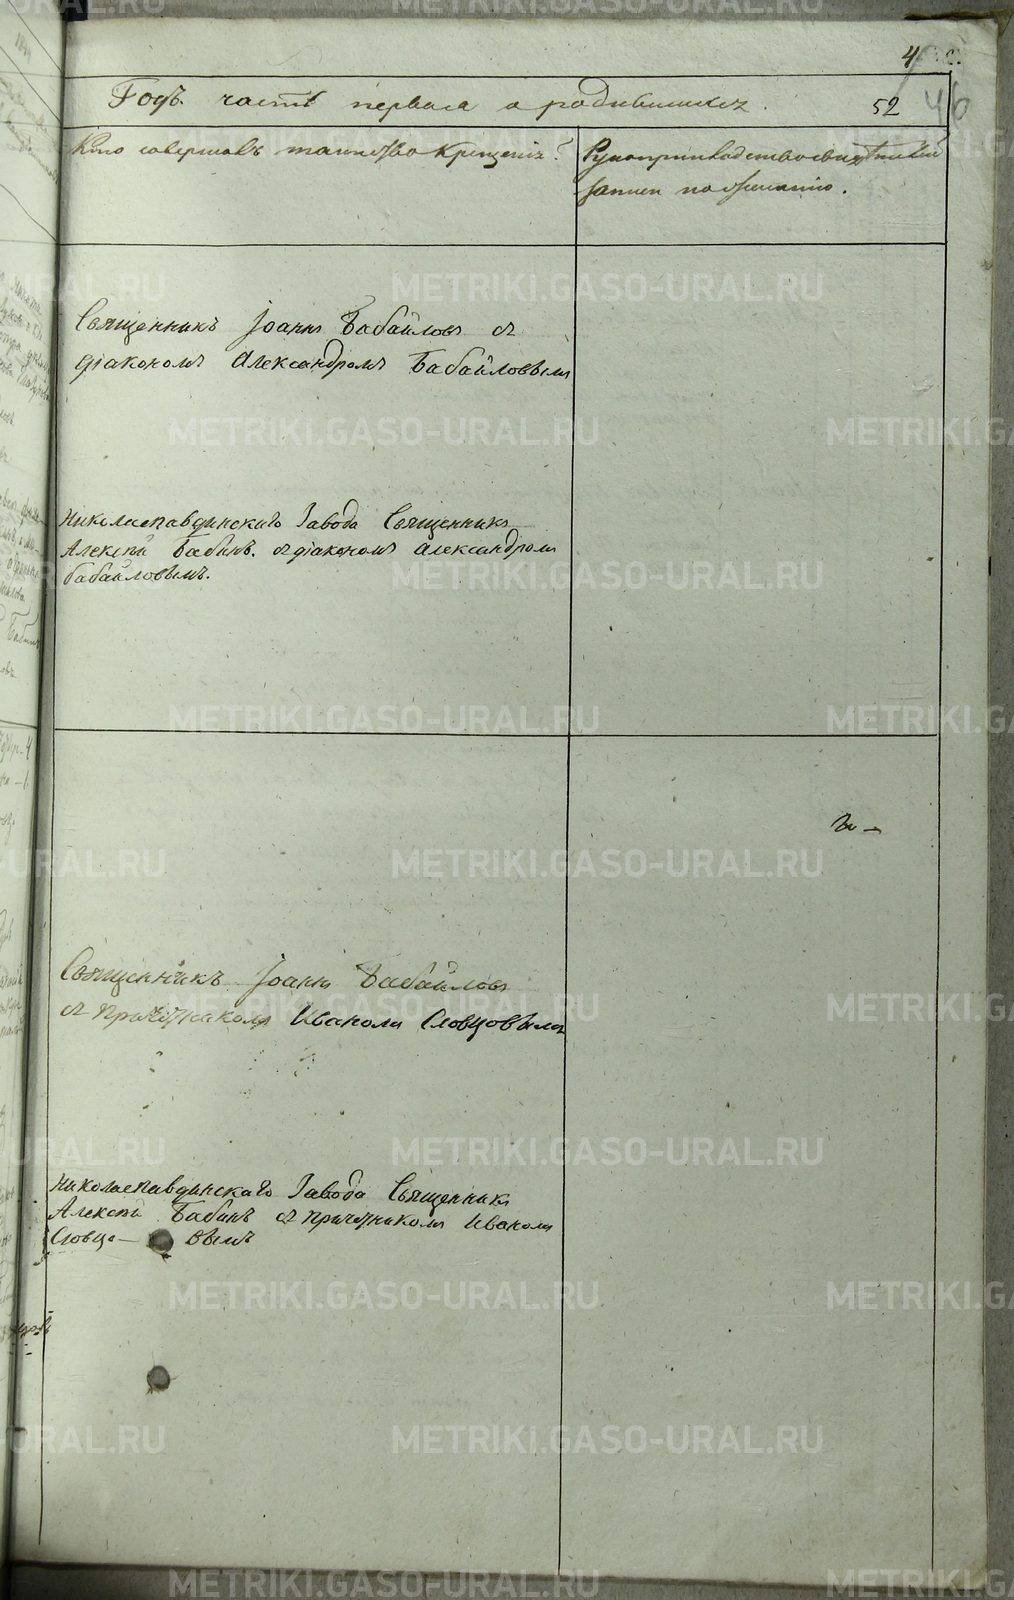 4
Годъ. часть первая о родившихся.
52
46
Кто совершалъ таинство Крещенія?
Рукоприкладство свидѣтелей
записи по желанію.
Священникъ Іоаннъ Бабайловъ съ
діакономъ Александромъ Бабайловымъ
Николаепавдинскаго Завода Священникъ
Алексѣй Бабинъ. съ діакономъ Александромъ
Бабайловымъ.
Священникъ Іоаннъ Бабайловъ
съ Причетникомъ Иваномъ Словцовымъ
Николаепавдинскаго Завода Священникъ
Алексѣй Бабинъ съ причетникомъ Иваномъ
Словцо- вымъ
METRIKI.GASO-URAL.RU